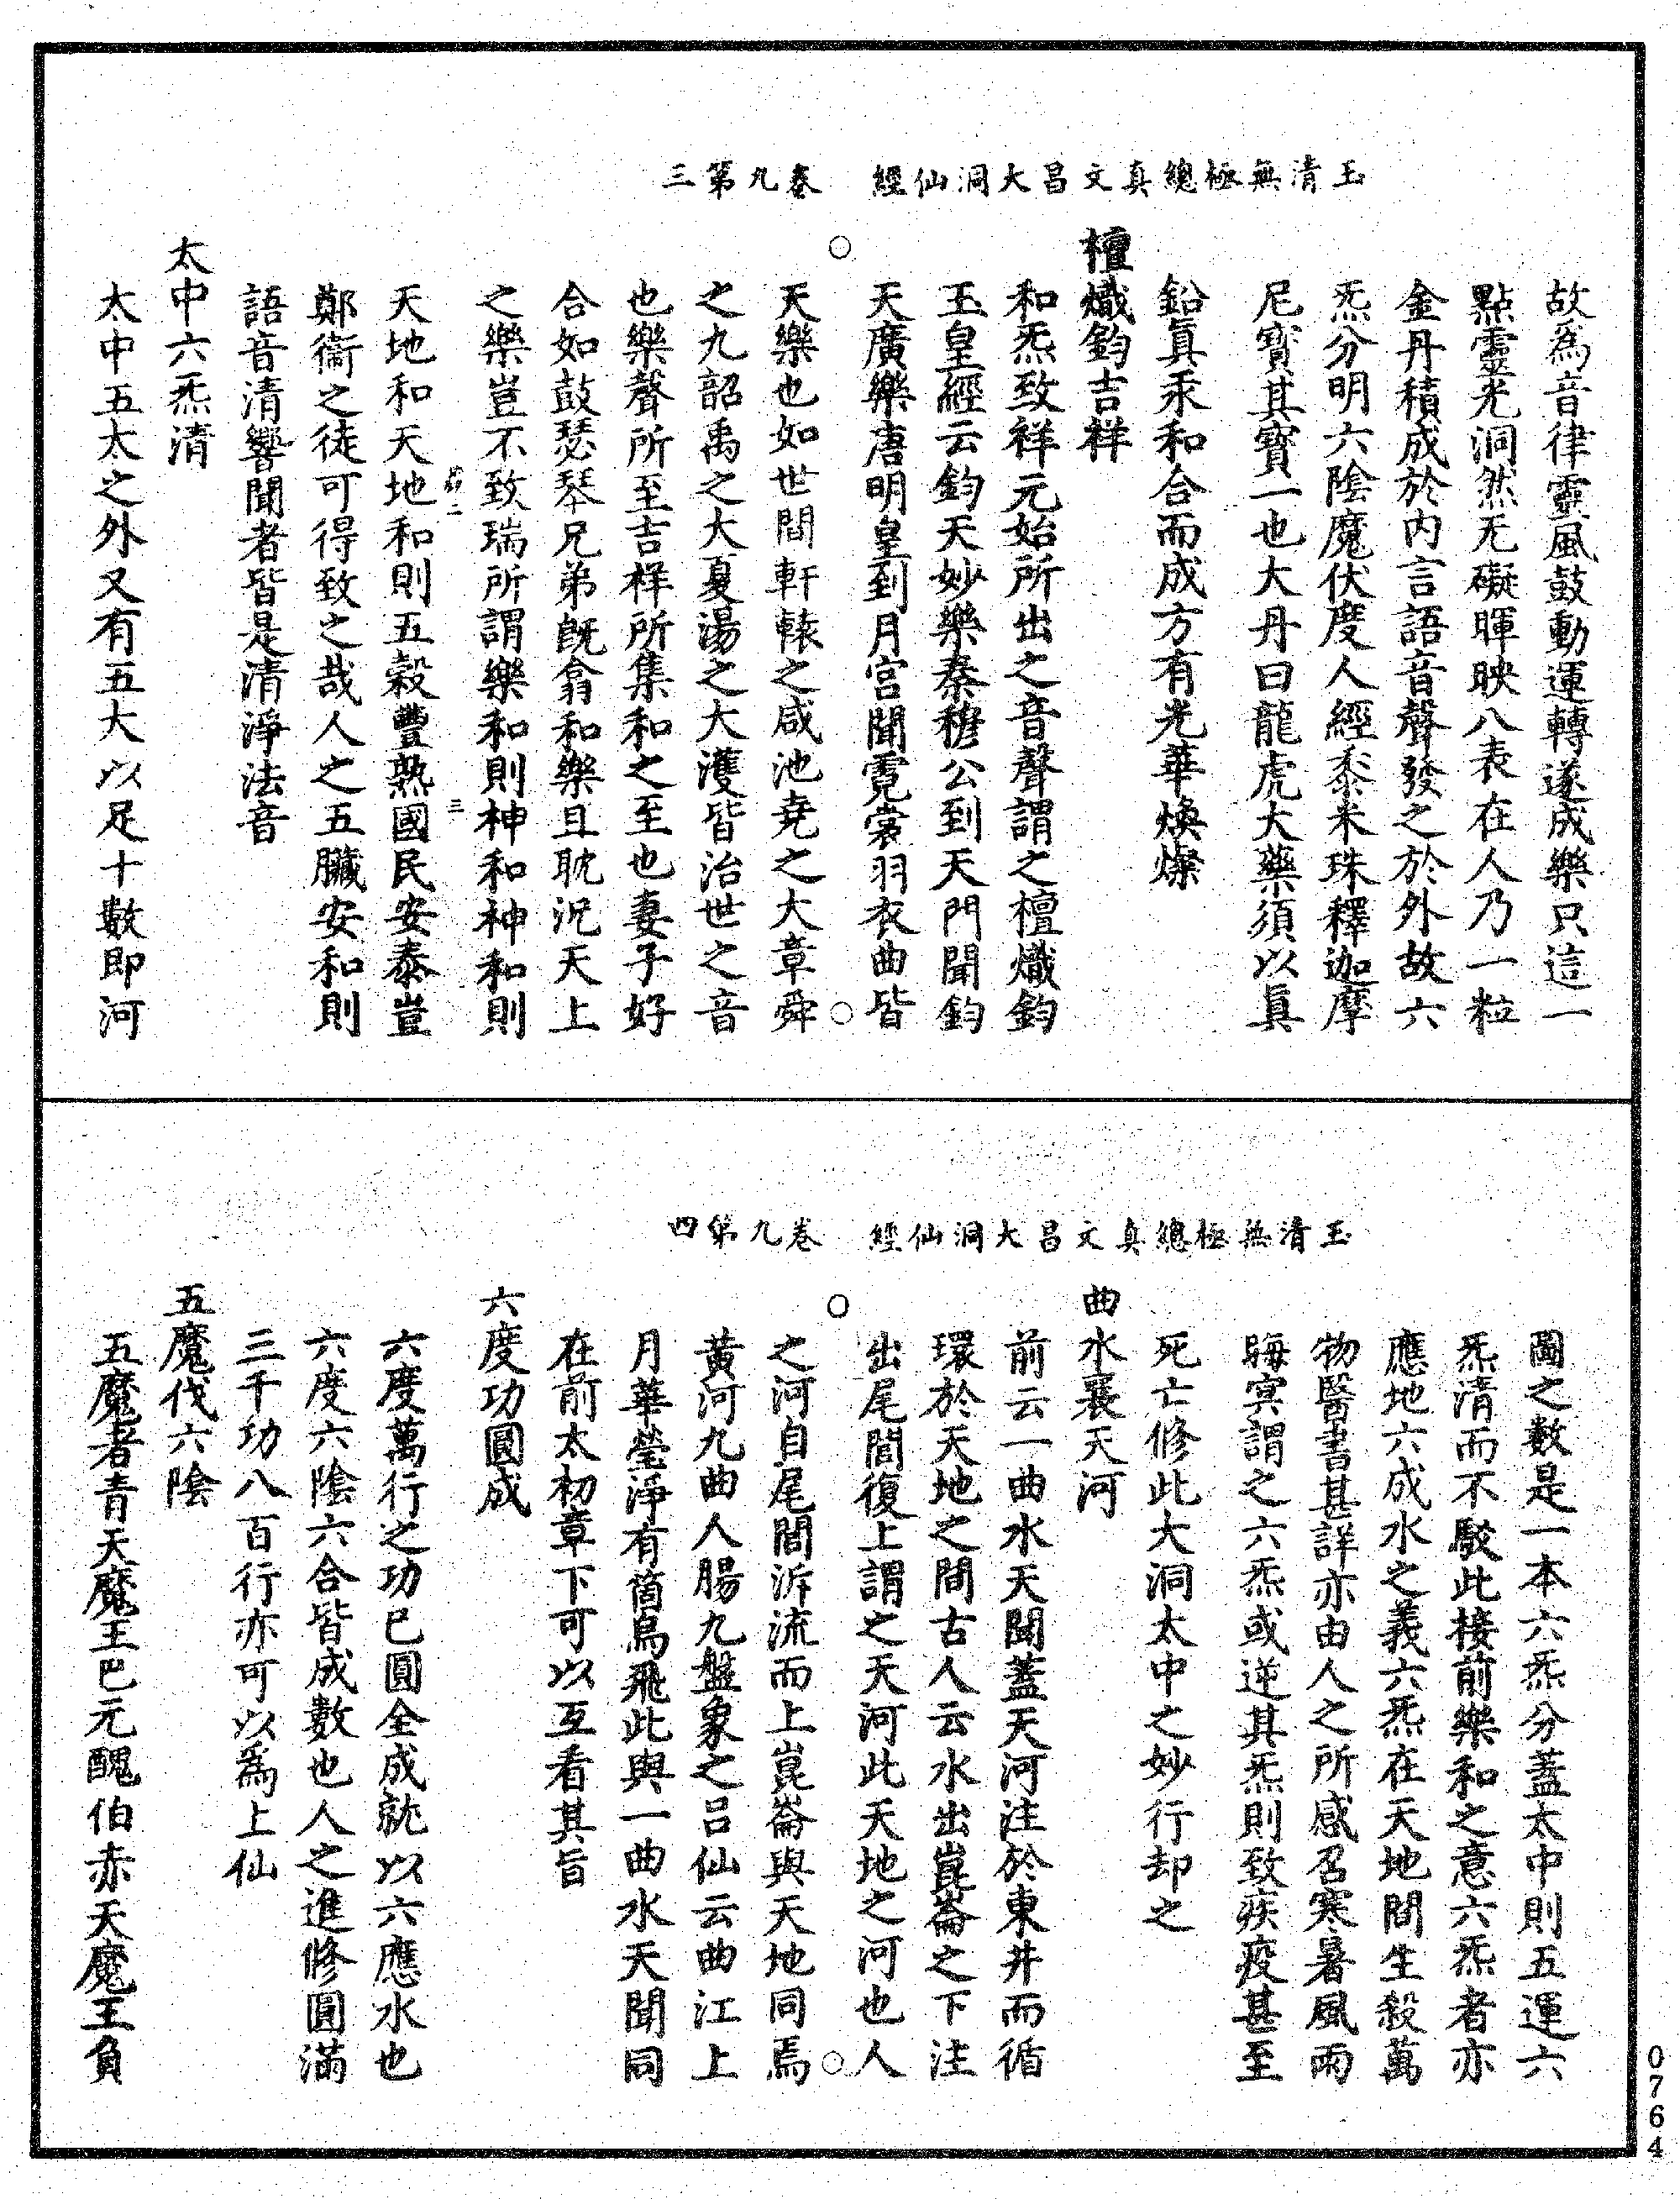 玉清無極總真文昌大洞仙經　卷九第三
故為音律靈風鼓動運轉遂成樂只這一
點靈光洞然无礙暉映八表在人乃一粒
金丹積成於內言語音聲發之於外故六
炁分明六陰魔伏度人經黍米珠釋迦摩
尼寶其寶一也大丹曰龍虎大藥須以眞
鉛眞汞和合而成方有光華煥燦
檀熾鈞吉祥
和炁致祥元始所出之音聲謂之檀熾鈞
玉皇經云鈞天妙樂秦穆公到天門聞鈞
天廣樂唐明皇到月宮聞霓裳羽衣曲皆
天樂也如世間軒轅之咸池堯之大章舜
之九韶禹之大夏湯之大濩皆治世之音
也樂聲所至吉祥所集和之至也妻子好
合如鼓瑟琴兄弟既翕和樂且耽況天上
之樂豈不致瑞所謂樂和則神和神和則
天地和天地和則五穀豐熟國民安泰豈
三
鄭衞之徒可得致之哉人之五臟安和則
語音清響聞者皆是清淨法音
太中六炁清
太中五太之外又有五大以足十數即河
玉清無極總真文昌大洞仙經　卷九第四
圖之數是一本六炁分蓋太中則五運六
炁清而不駁此接前樂和之意六炁者亦
應地六成水之義六炁在天地間生殺萬
物醫書甚詳亦由人之所感召寒暑風雨
晦冥謂之六炁或逆其炁則致疾疫甚至
死亡修此大洞太中之妙行却之
曲水襄天河
前云一曲水天聞蓋天河注於東井而循
環於天地之間古人云水出崑崙之下注
出尾閭復上謂之天河此天地之河也人
之河自尾閭泝流而上崑崙與天地同焉
黃河九曲人腸九盤象之呂仙云曲江上
月華瑩淨有箇烏飛此與一曲水天聞同
在前太初章下可以互看其旨
六度功圓成
六度萬行之功已圓全成就以六應水也
六度六陰六合皆成數也人之進修圓滿
三千功八百行亦可以為上仙
五魔伐六陰
五魔者青天魔王巴元醜伯赤天魔王負
0764